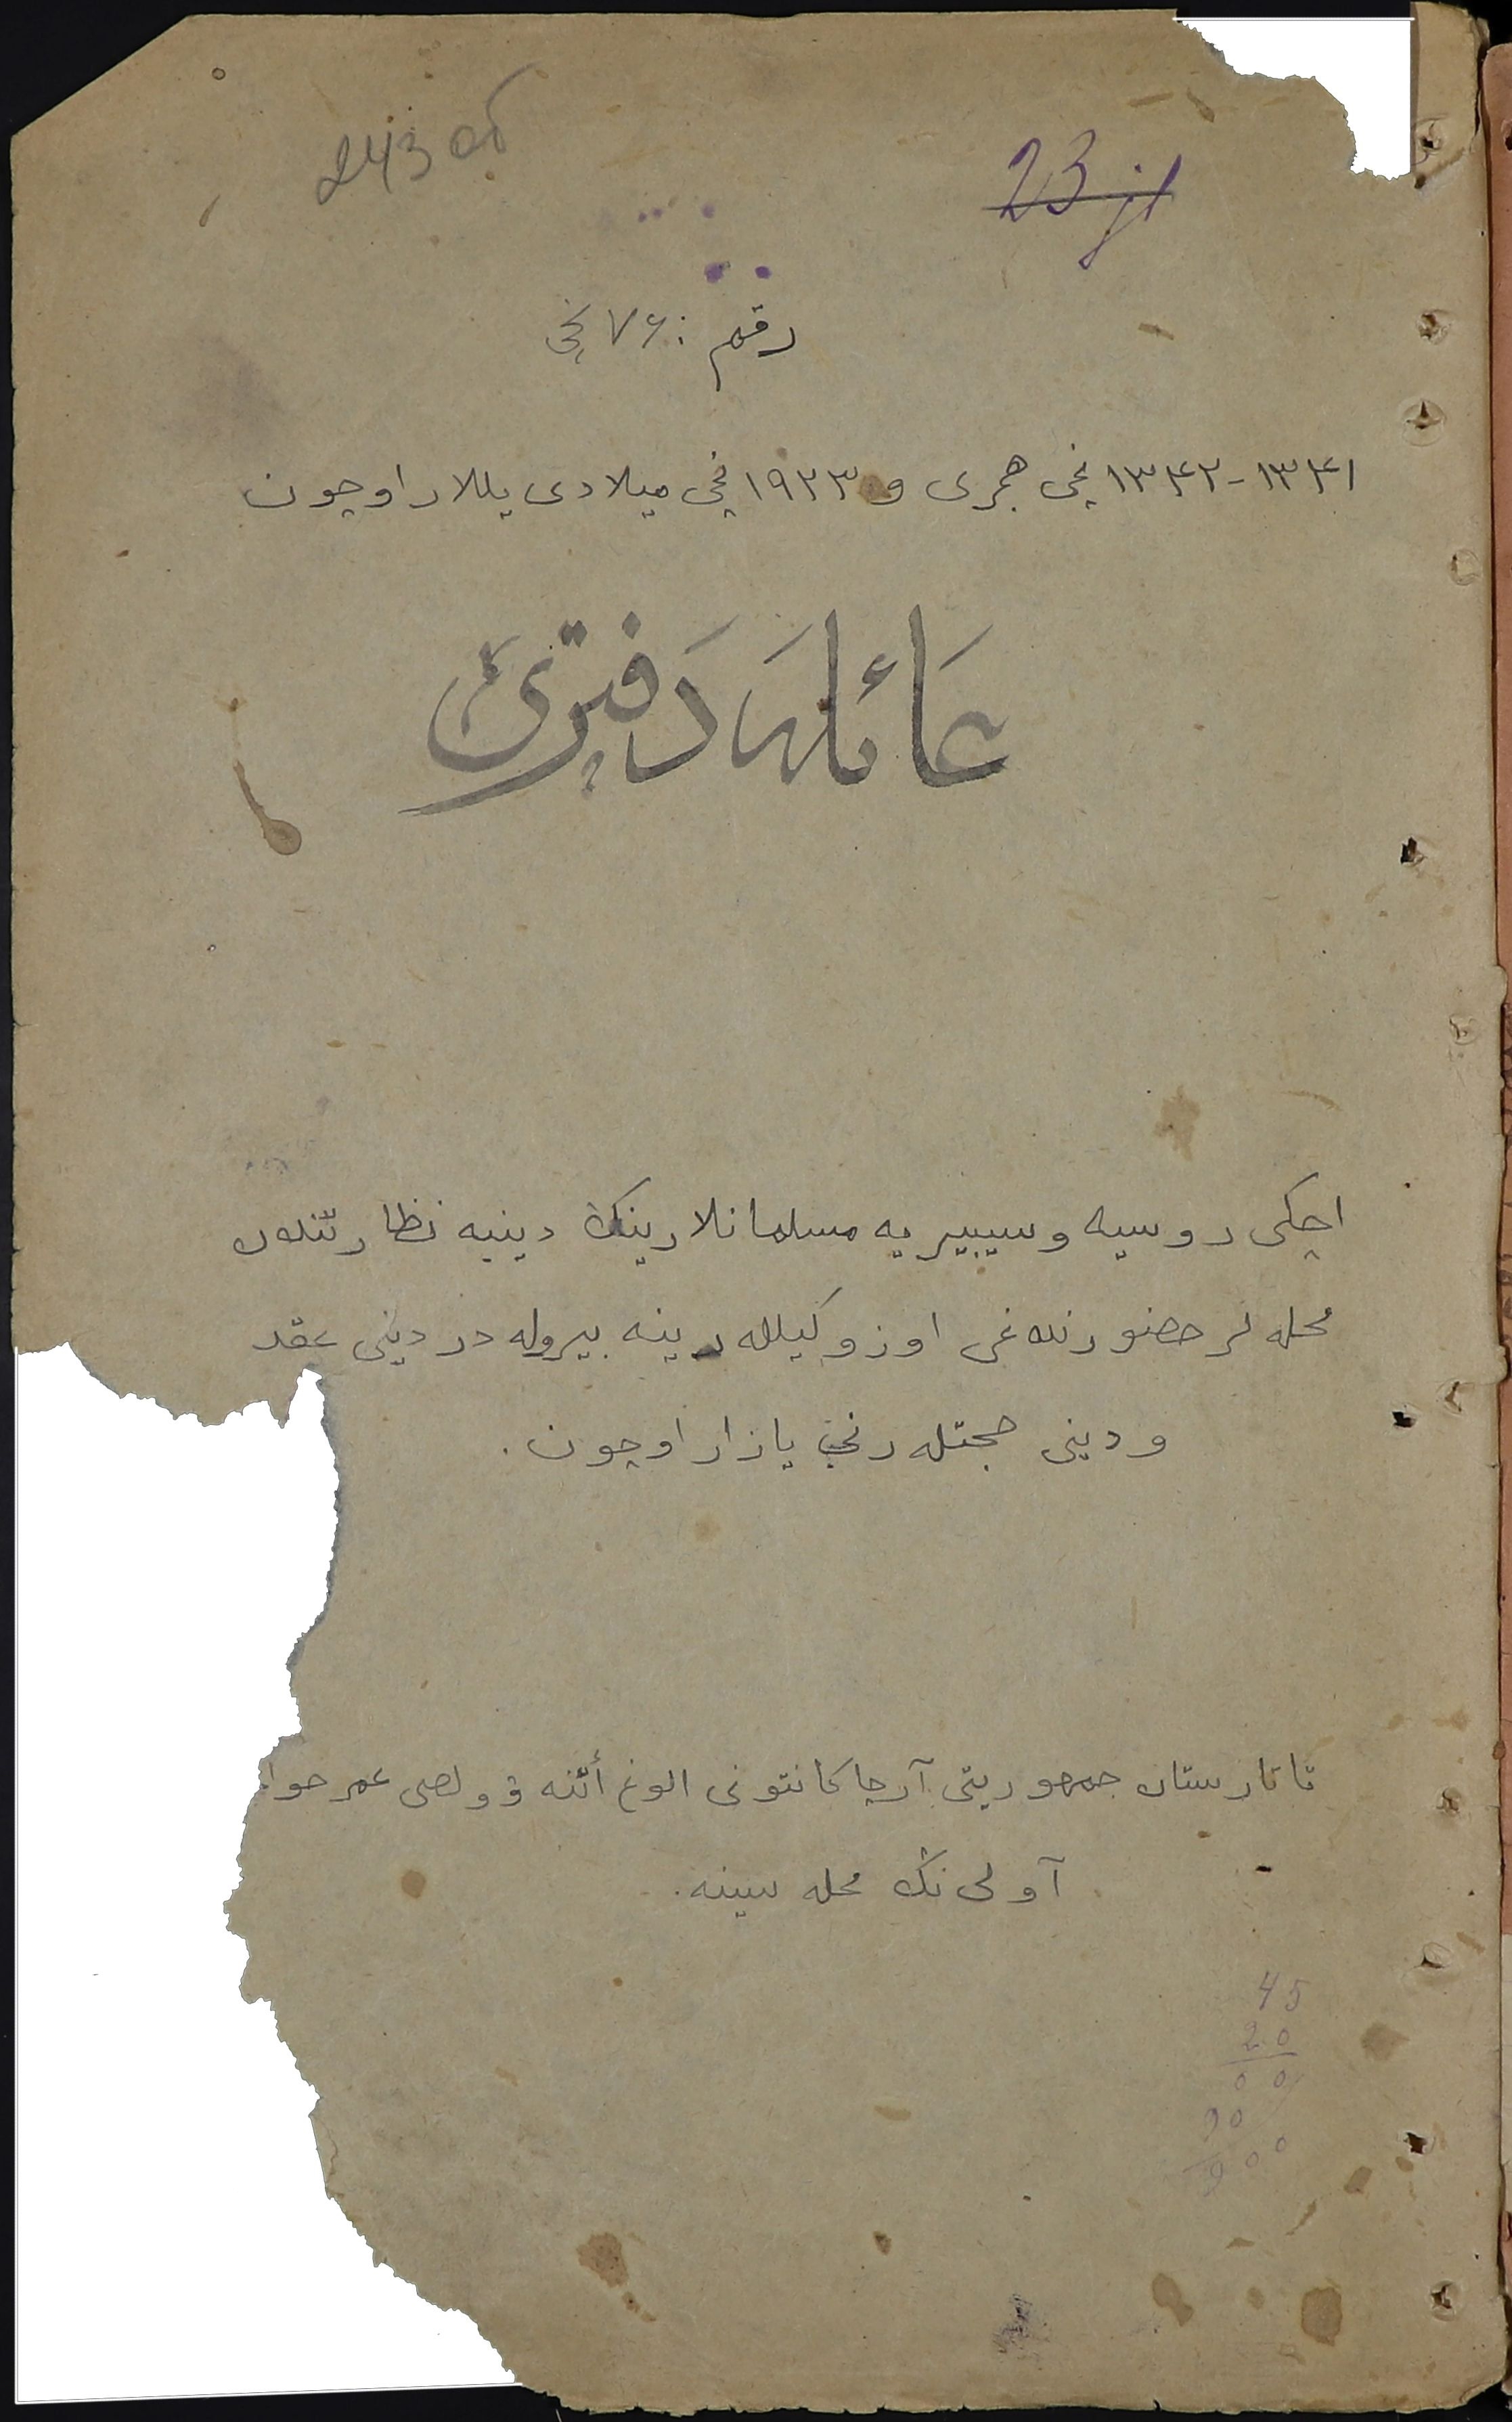 243 об
23 л
رقم : ٧٦ نچی
١٣٤١ - ١٣٤٢ نچی هجری و ١٩٢٣ نچی میلادی یللار اوچون
عَائلَه دَفترئ
اچکی روسیه و سیبیریه مسلمانلارینڭ دینیه نظارتندن
محله لر حضورنداغی اوز وکیللهرینه بیروله در دینی عقد
و دینی حجتلهرنی یازار اوچون .
تاتارستان جمهوریتی آرچا کانتونی الوغ أتنه وولصی عمر حوا
آولی نڭ محله سینه .
45
20
00
90
900